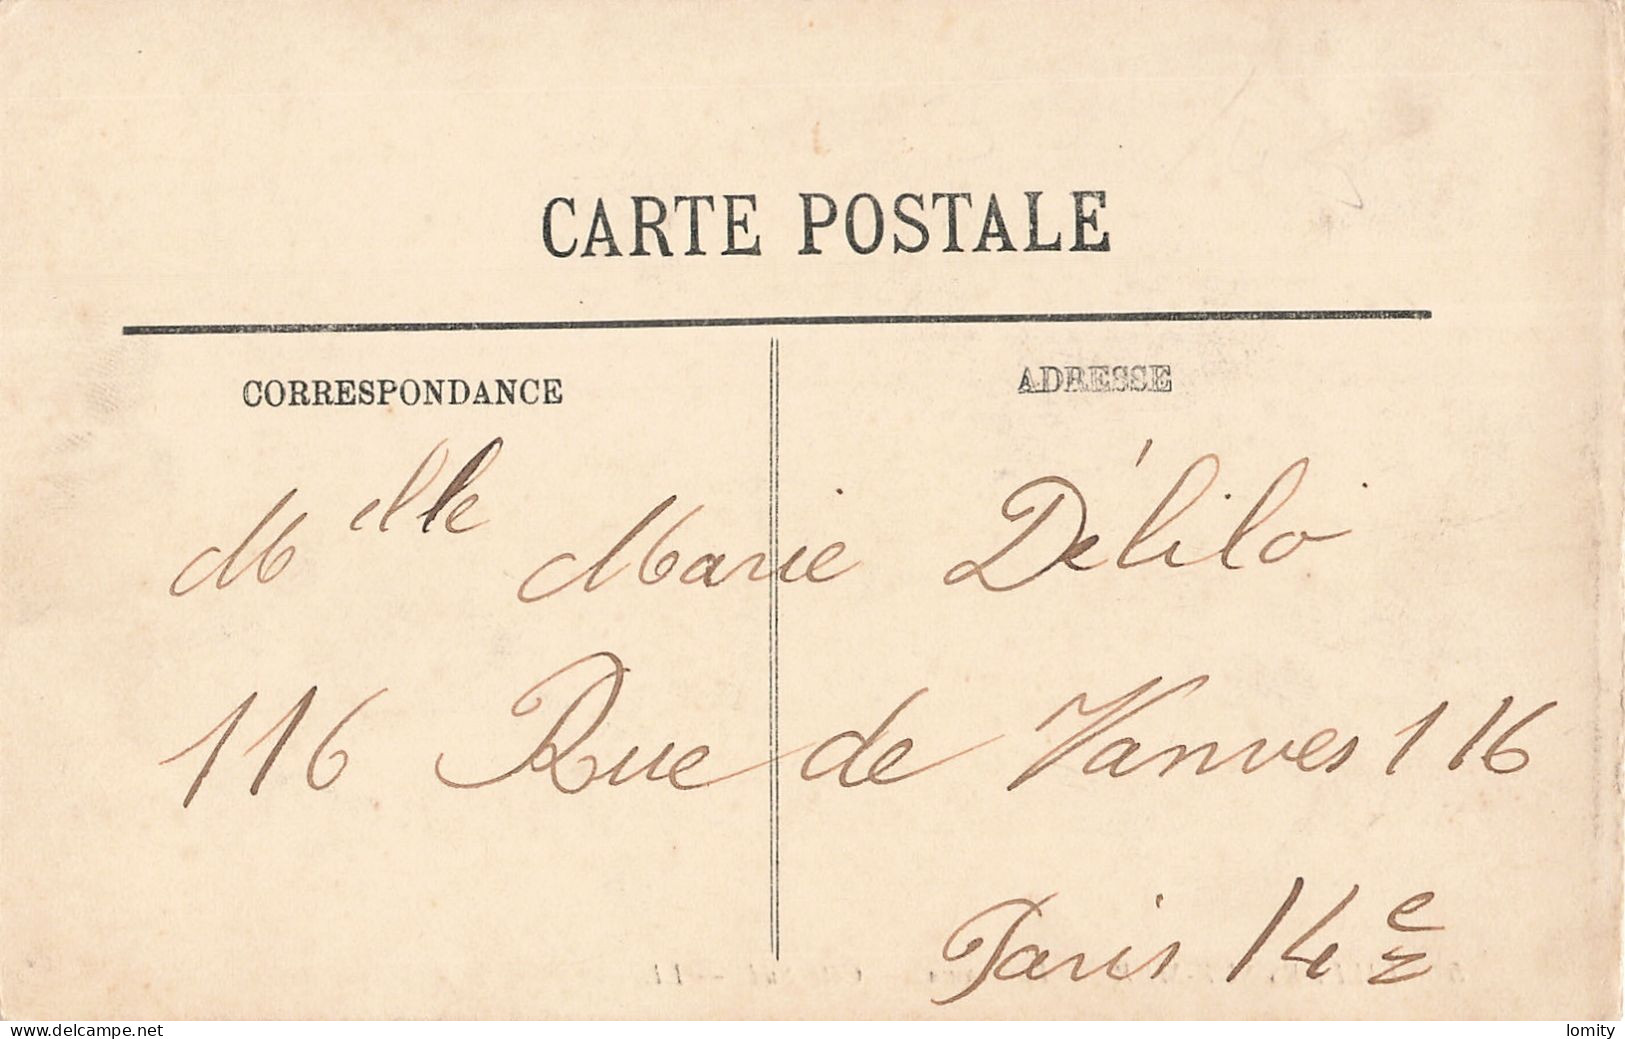 CARTE POSTALE
CORRESPONDANCE ADRESSE
Melle Marie Délilo
116 Rue de Vanves 116
Paris 14e
https://www.delcampe.net lomity